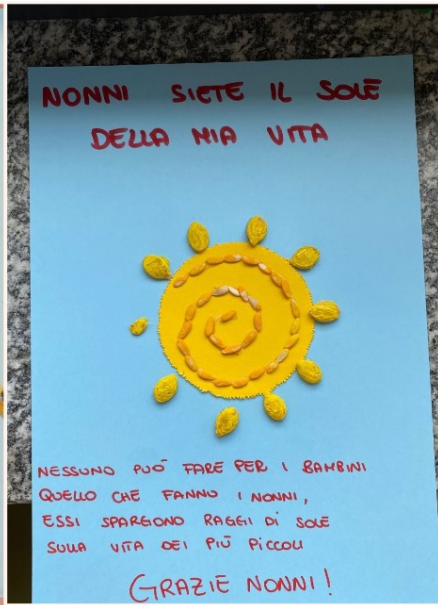 NONNI SIETE IL SOLE
DELLA MIA VITA
NESSUNO PUÓ FARE PER I BAMBINI
QUELLO CHE FANNO I NONNI,
ESSI SPARGONO RAGGI DI SOLE
SULLA VITA DEI PIÙ PICCOLI
GRAZIE NONNI!